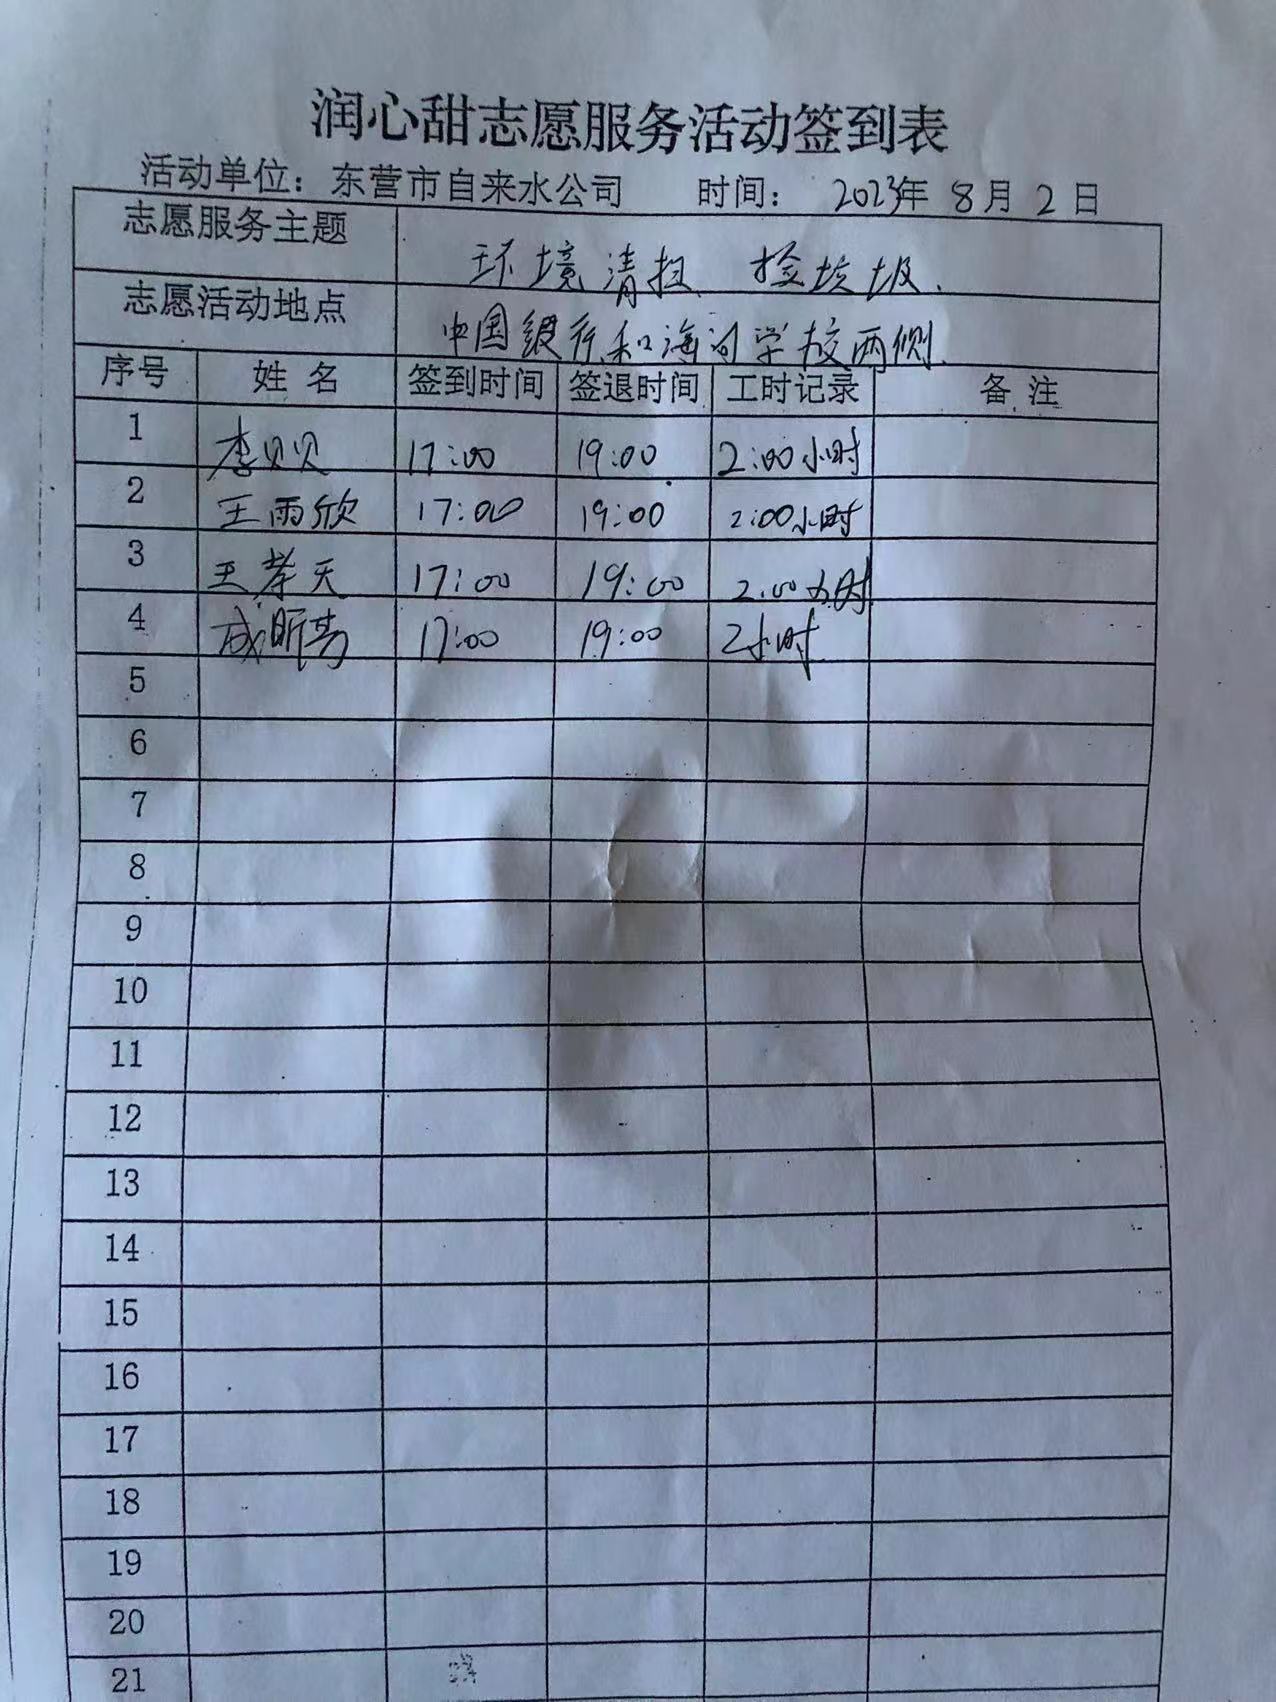 润心甜志愿服务活动签到表
活动单位：东营市自来水公司 时间： 2023年 8月 2日
志愿服务主题 环境清扫 捡垃圾.
志愿活动地点 中国银行和海河学校两侧.
序号 姓名 签到时间 签退时间 工时记录 备注
1 李贝贝 17:00 19:00 2:00小时
2 王雨欣 17:00 19:00 2:00小时
3 王孝天 17:00 19:00 2:00小时
4 17:00 19:00 2小时
5
6
7
8
9
10
11
12
13
14
15
16
17
18
19
20
21